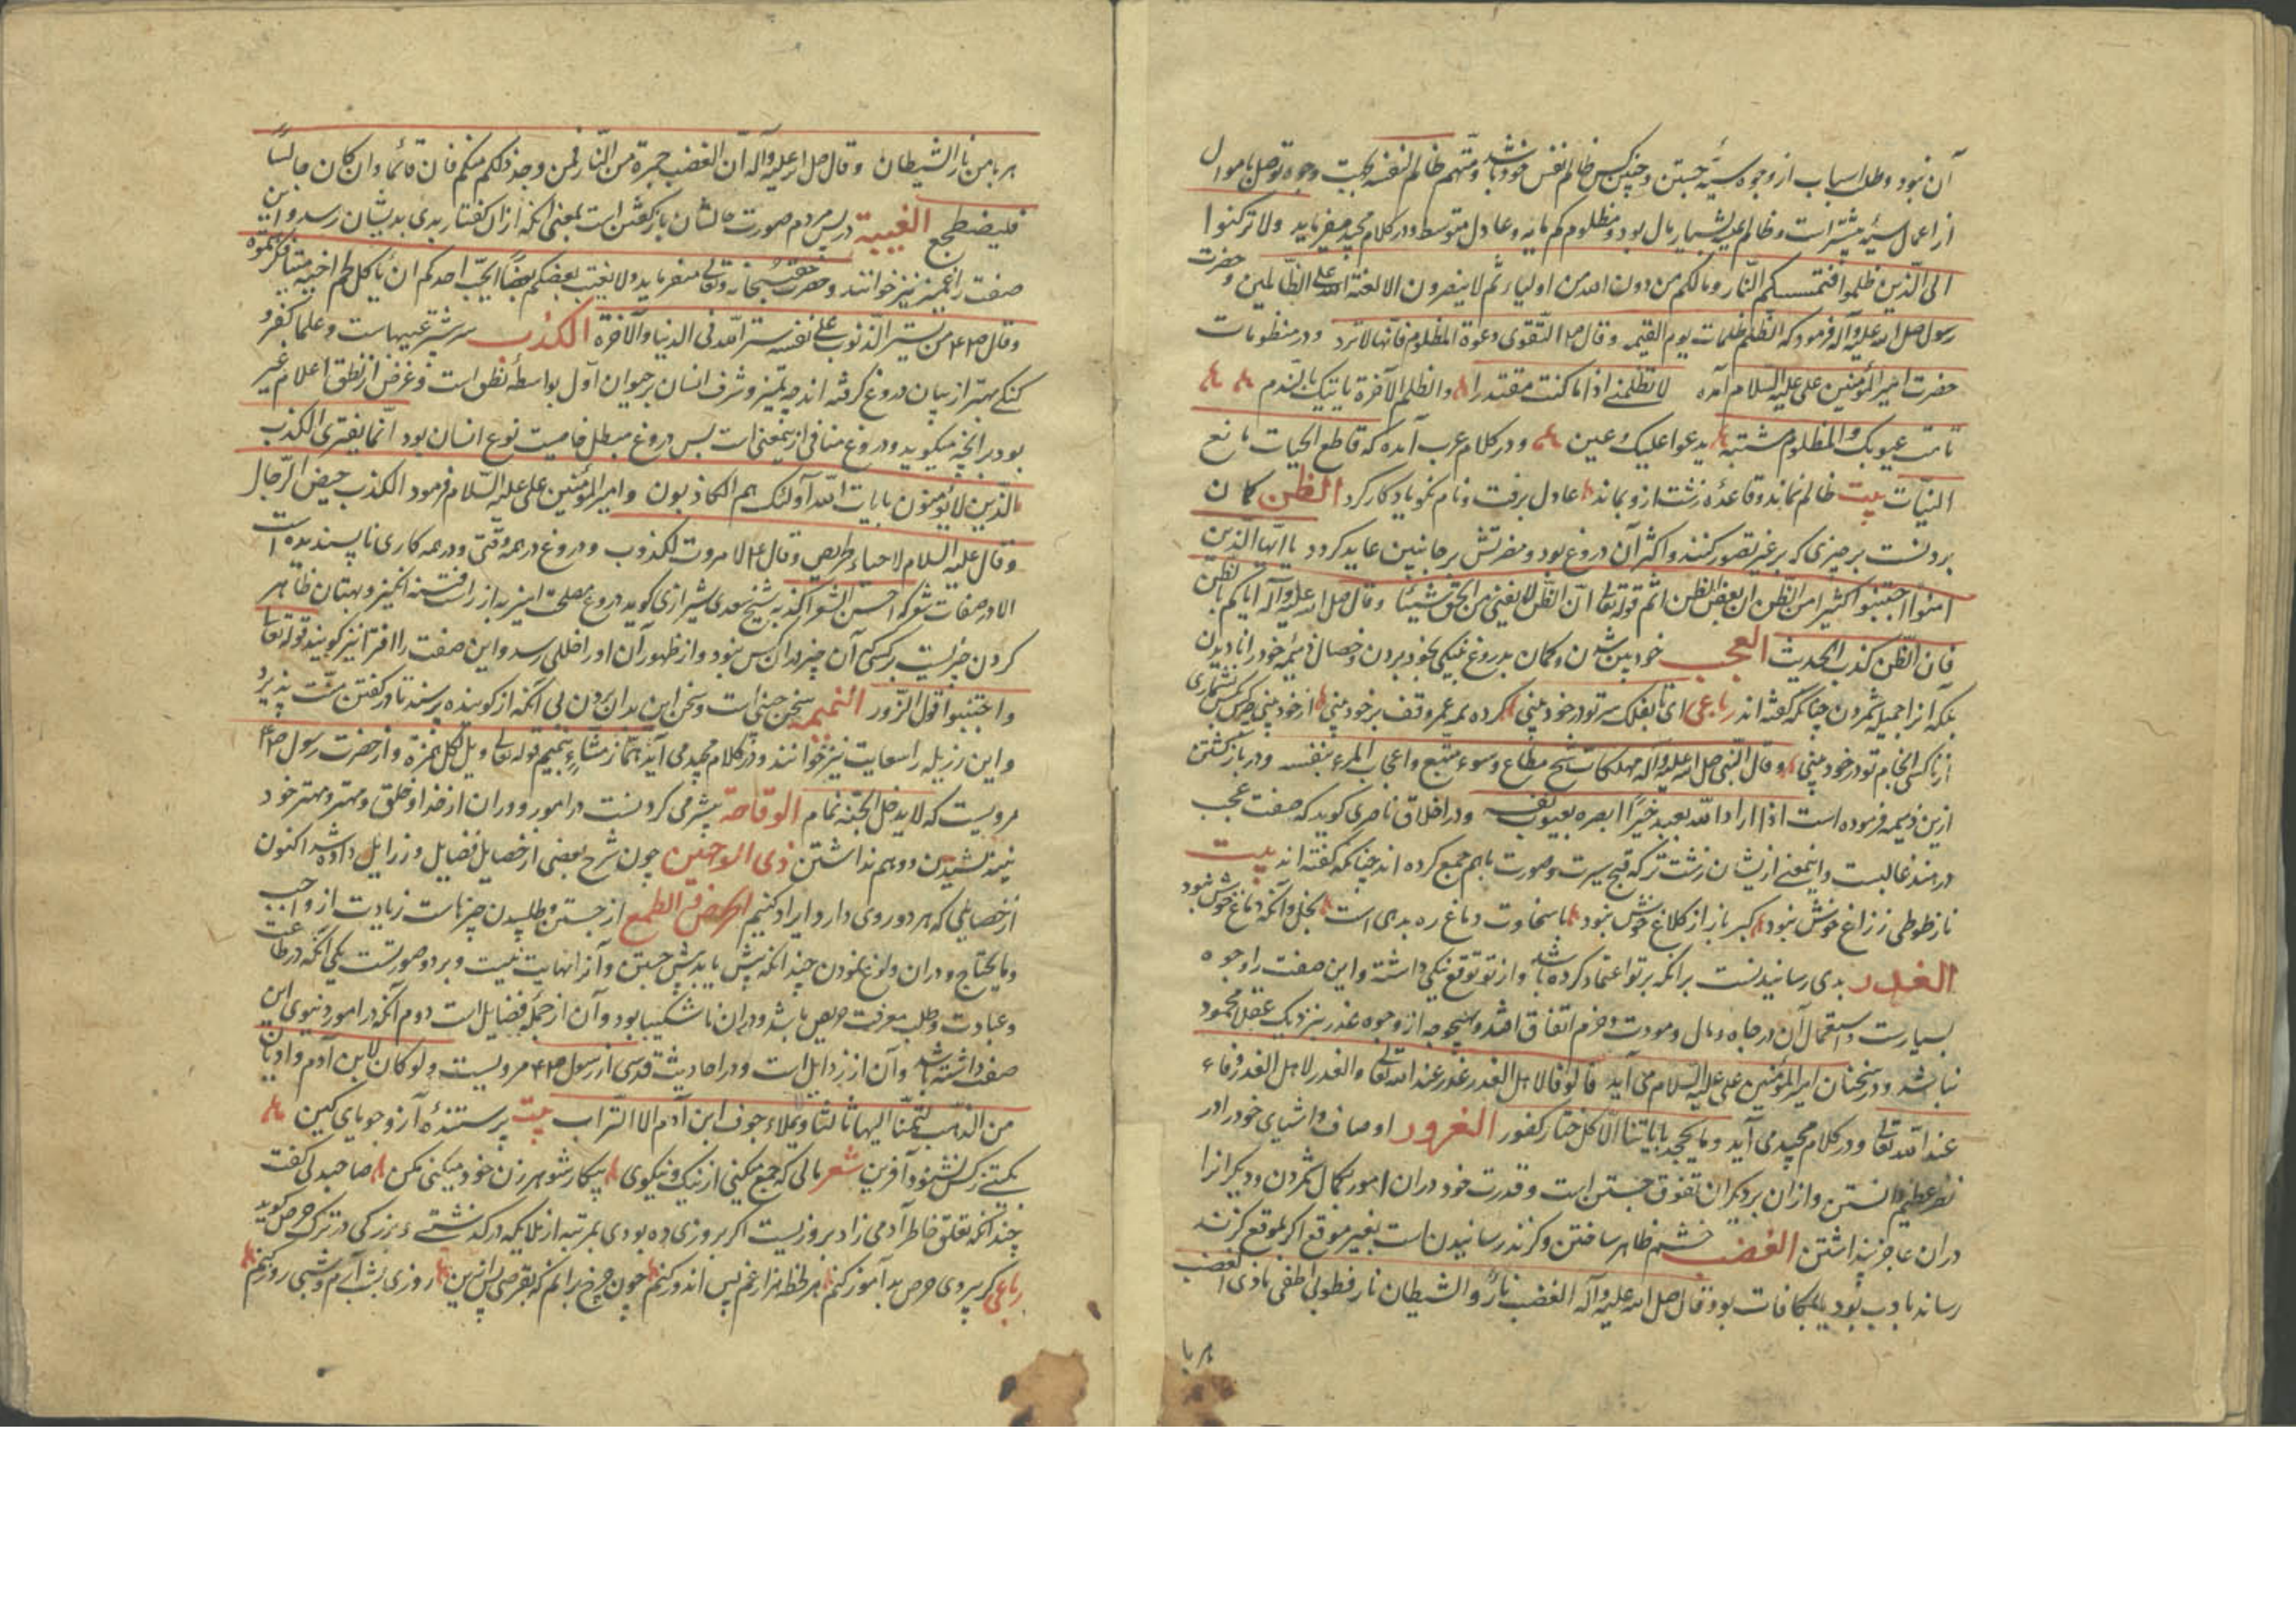 آن نبود و طلب اسباب از وجوه سیّئه جستن و چنین کس ظالم نفس خود باشد و متهم ظالم النفسه بجهت وجوه توصل باموال
از اعمال سیّئه مشیّر است و ظالم بسیار مال بود و مظلوم کم مایه و عادل متوسط و در کلام مجید میفرماید ولا ترکنوا
الی الّذین ظلموا فتمسکم النّار و مالکم من دون الله من اولیاء ثم لا ینصرون الا لعنة الله علی الظّالمین و حضرت
رسول صلی الله علیه وآله فرمود که الظّلم ظلمات یوم القیمه و قال اتّقوی دعوة المظلوم فانّها لا ترد و در منظومات
حضرت امیر المؤمنین علی علیه السّلام آمده لا تظلمنّ اذا ما کنت مقتدرا والظلم الآخرة یأتیک بالندم
نامت عیوبک والمظلوم منتبه یدعوا علیک و عین و در کلام عرب آمده که قاطع الحیات مانع
النیّات بیت ظالم نماند و قاعدهٔ زشت از و بماند عادل برفت و نام نکو یادکار کرد الظن کمان
بردنست بر چیزی که بر غیر تصور کنند و اکثر آن دروغ بود و مضرتش بر جانبین عاید کردد یا ایّها الذین
امنوا اجتنبوا کثیرا من الظّن ان بعض الظن اثم قوله تعالی انّ الظّن لا یغنی من الحقّ شیئا و قال صلی الله علیه وآله ایاکم بالظن
فان الظّن کذب الحدیث العجب خود بین شدن و کمان بدروغ نیکی بخود بردن و خصال ذمیمهٔ خود را نادیدن
بلکه آنرا جمیله شمردن چنانکه کفته اند رباعی ای تا بفلک سر تو در خود مبنی کرده همه عمر وقف بر خود مبنی از خود مبنی
از ناکسی انجام تو در خود مبنی و قال النّبی صلی الله علیه وآله مهلکات شح مطاع و سوء متّبع واعجاب المرء بنفسه و در بازکشتن
ازین ذمیمه فرموده است اذا اراد الله بعبد خیرًا ابصره بعیوب نفسه و در اخلاق ناصری کوید که صفت عجب
در هند غالبست و اینمعنی از ایشان زشت تر که قبح سیرت و صورت باهم جمع کرده اند چنانکه کفته اند بیت
ناز طوطی ز زاغ خوش نبود کبر باز از کلاغ خوش نبود با سخاوت دماغ ره بدهی است بخل و آنکه دماغ خوش نبود
الغدر بدی رسانیدنست بر انکه بر تو اعتماد کرده باشد و از تو توقع نیکی داشته و این صفت را وجوه
بسیارست و استعمال آن در جاه و مال و مودت و حرم اتفاق افتد و بهیچوجه از وجوه غدر بنزدیک عقل محمود
نباشد و در سخنان امیر المؤمنین علی علیه السّلام می آید قالوفا لاهل الغدر غدر عند الله تعالی والغدر لاهل الغدر وفاء
عند الله تعالی و در کلام مجید می آید و ما یجحد بایاتنا الّا کل ختار کفور الغرور اوصاف و اشیای خود را در
نظر عظیم دانستن و ازان بر دیکران تفوق جستن است و قدرت خود دران امور بکمال شمردن و دیکر انرا
دران عاجز پنداشتن الغضب خشم ظاهر ساختن و کزند رسانیدن است بغیر موقع اکر بموقع کزند
رساند با دب بود یا بمکافات بود و قال صلی الله علیه وآله الغضب نارٌ والشیطان نار فطوبی اطفی ناذی الغضب
هر با
هر با من نار الشّیطان و قال صلی الله علیه وآله انّ الغضب جمرة من النّار فمن وجد ذلکم منکم فان قائما وان کان جالسا
فلیضطجع الغیبة در پس مردم صورت حالشان باز کفتن است بمعنی انکه از ان کفتار بدی بدیشان رسد و این
صفت را غمز نیز خوانند و حضرت حقّ سبحانه وتعالی میفرماید ولا یغتب بعضکم بعضًا ایحبّ احدکم ان یاکل لحم اخیه میتا فکرهتموه
وقال من تستر الذّنوب علی نفسه ستر الله فی الدنیا والآخرة الکذب سرشتر عیبهاست و علما کفته
کنکی بهتر از بیان دروغ کرفته اند چه تمیز و شرف انسان بر حیوان اوّل بواسطهٔ نطق است و غرض از نطق اعلام غیر
بود بر انچه میکوید و دروغ منافی ازینمعنی است پس دروغ مبطل خاصیت نوع انسان بود انّما یفتری الکذب
الّذین لا یؤمنون بایات الله اولئک هم الکاذبون و امیر المؤمنین علی علیه السّلام فرمود الکذب حیض الرّجال
و قال علیه السلام لا حیاء لحریص و قال لا مروت لکذوب و دروغ در همه وقتی و در همه کاری ناپسندیده است
الا در صفات شعر که احسن الشعر اکذبه شیخ سعدی شیرازی کوید دروغ مصلحت امیز به از راست فتنه انکیز و بهتان ظاهر
کردن چیزیست بر کسی که آن چیز بدان کس نبود و از ظهور آن او را خللی رسد و این صفت را افترا نیز کویند قوله تعالی
واجتنبوا قول الزّور النمیمه سخن چینی است و سخن این بدان بردن بی انکه از کوینده پرسند تا در کفتن منّت پذیرد
و این رزیله را سعایت نیز خوانند و در کلام مجید می آید همّاز مشّاء بنمیم قوله تعالی ویل لکل همزة و از حضرت رسول
مرویست که لا یدخل الجنّة نمام الوقاحة بیشرمی کردنست در امور و دران از خدا و خلق و مهتر و بهتر خود
نیندیشیدن و وهم نداشتن ذی الوجهین چون شرح بعضی از خصایل فضایل و رزایل داده شد اکنون
از خصایلی که هر دو روی دارد ایراد کنیم الحرص و الطمع از جستن و طلبیدن چیز ناست زیادت از واجب
و مایحتاج و دران ولوغ نمودن چندانکه پیش یابد بیش جستن و آنرا نهایت نیست و بر دو صورتست یکی آنکه در طاعت
و عبادت و طلب معرفت حریص باشد و دران ناشکیبا بود و آن از جملهٔ فضایل است دوم آنکه در امور دنیوی این
صفت داشته باشد و آن از رزایل است و در احادیث قدسی از رسول مرویست ولو کان لابن آدم وادیان
من الذهب لتمنّا الیها ثالثا و یملاء جوف ابن آدم الا التّراب بیت پرستندهٔ آز و جویای کین
بکیتی ز کس نشنود آفرین شعر مالی که جمع میکنی از نیک و نیکوی پیکار شوهر زن خود میکنی مکن صاحبدلی کفت
چندانکه تعلق خاطر آدمی زاد بروزیست اکر بروزی ده بودی بمرتبه از ملایکه درکذشتی و بزرکی در ترک حرص کوید
رباعی کر پیروی حرص بد آموز کنم هر لحظه هزار غم پس اندوز کنم چون چرخ برانم که بقرصی پس ازین روزی بشب آرم و شبی روز کنم